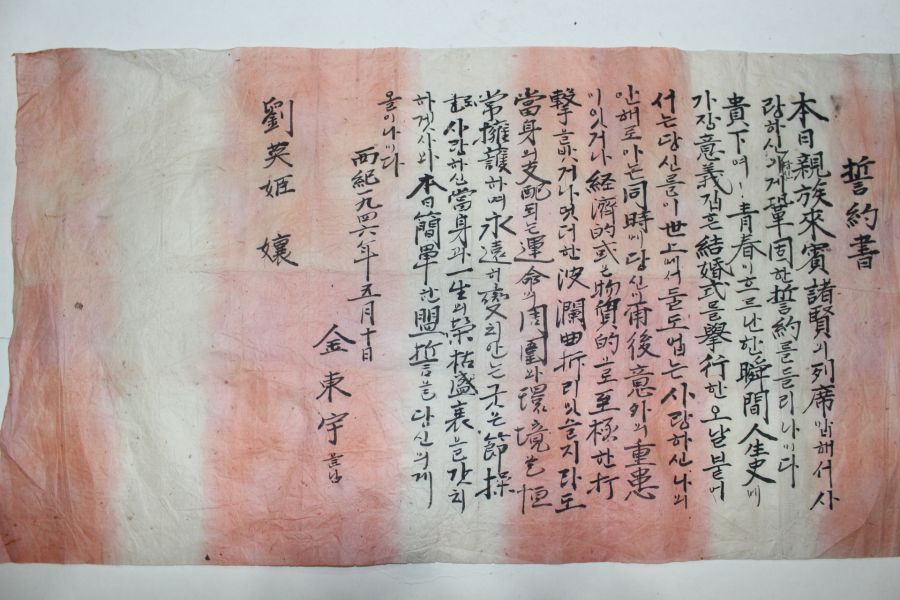 誓約書
本日親族來賓諸賢의列席밑해서사
랑하신 게鞏固한誓約를들리나이다
貴下여, 青春이흐르난한瞬間人生史에
가장意義깁흔結婚式를擧行한오날붙어
서는당신를이世上에서둘도업는사랑하신나의
안해로아는同時에당신이甫後意外의重患
이잇거나経済的或은物質的으로至極한打
擊을밧거나엇더한波瀾曲折리잇슬지라도
當身의支配되는運命의周圍와環境을恒
常擁護하며永遠히變치안는굿은節操
로사랑하신當身과一生의榮枯盛衰을갓치
하겟사와本日簡單한盟誓을당신의게
올이나이다
西紀一九四六年五月十日
金東宇
劉英姬 孃